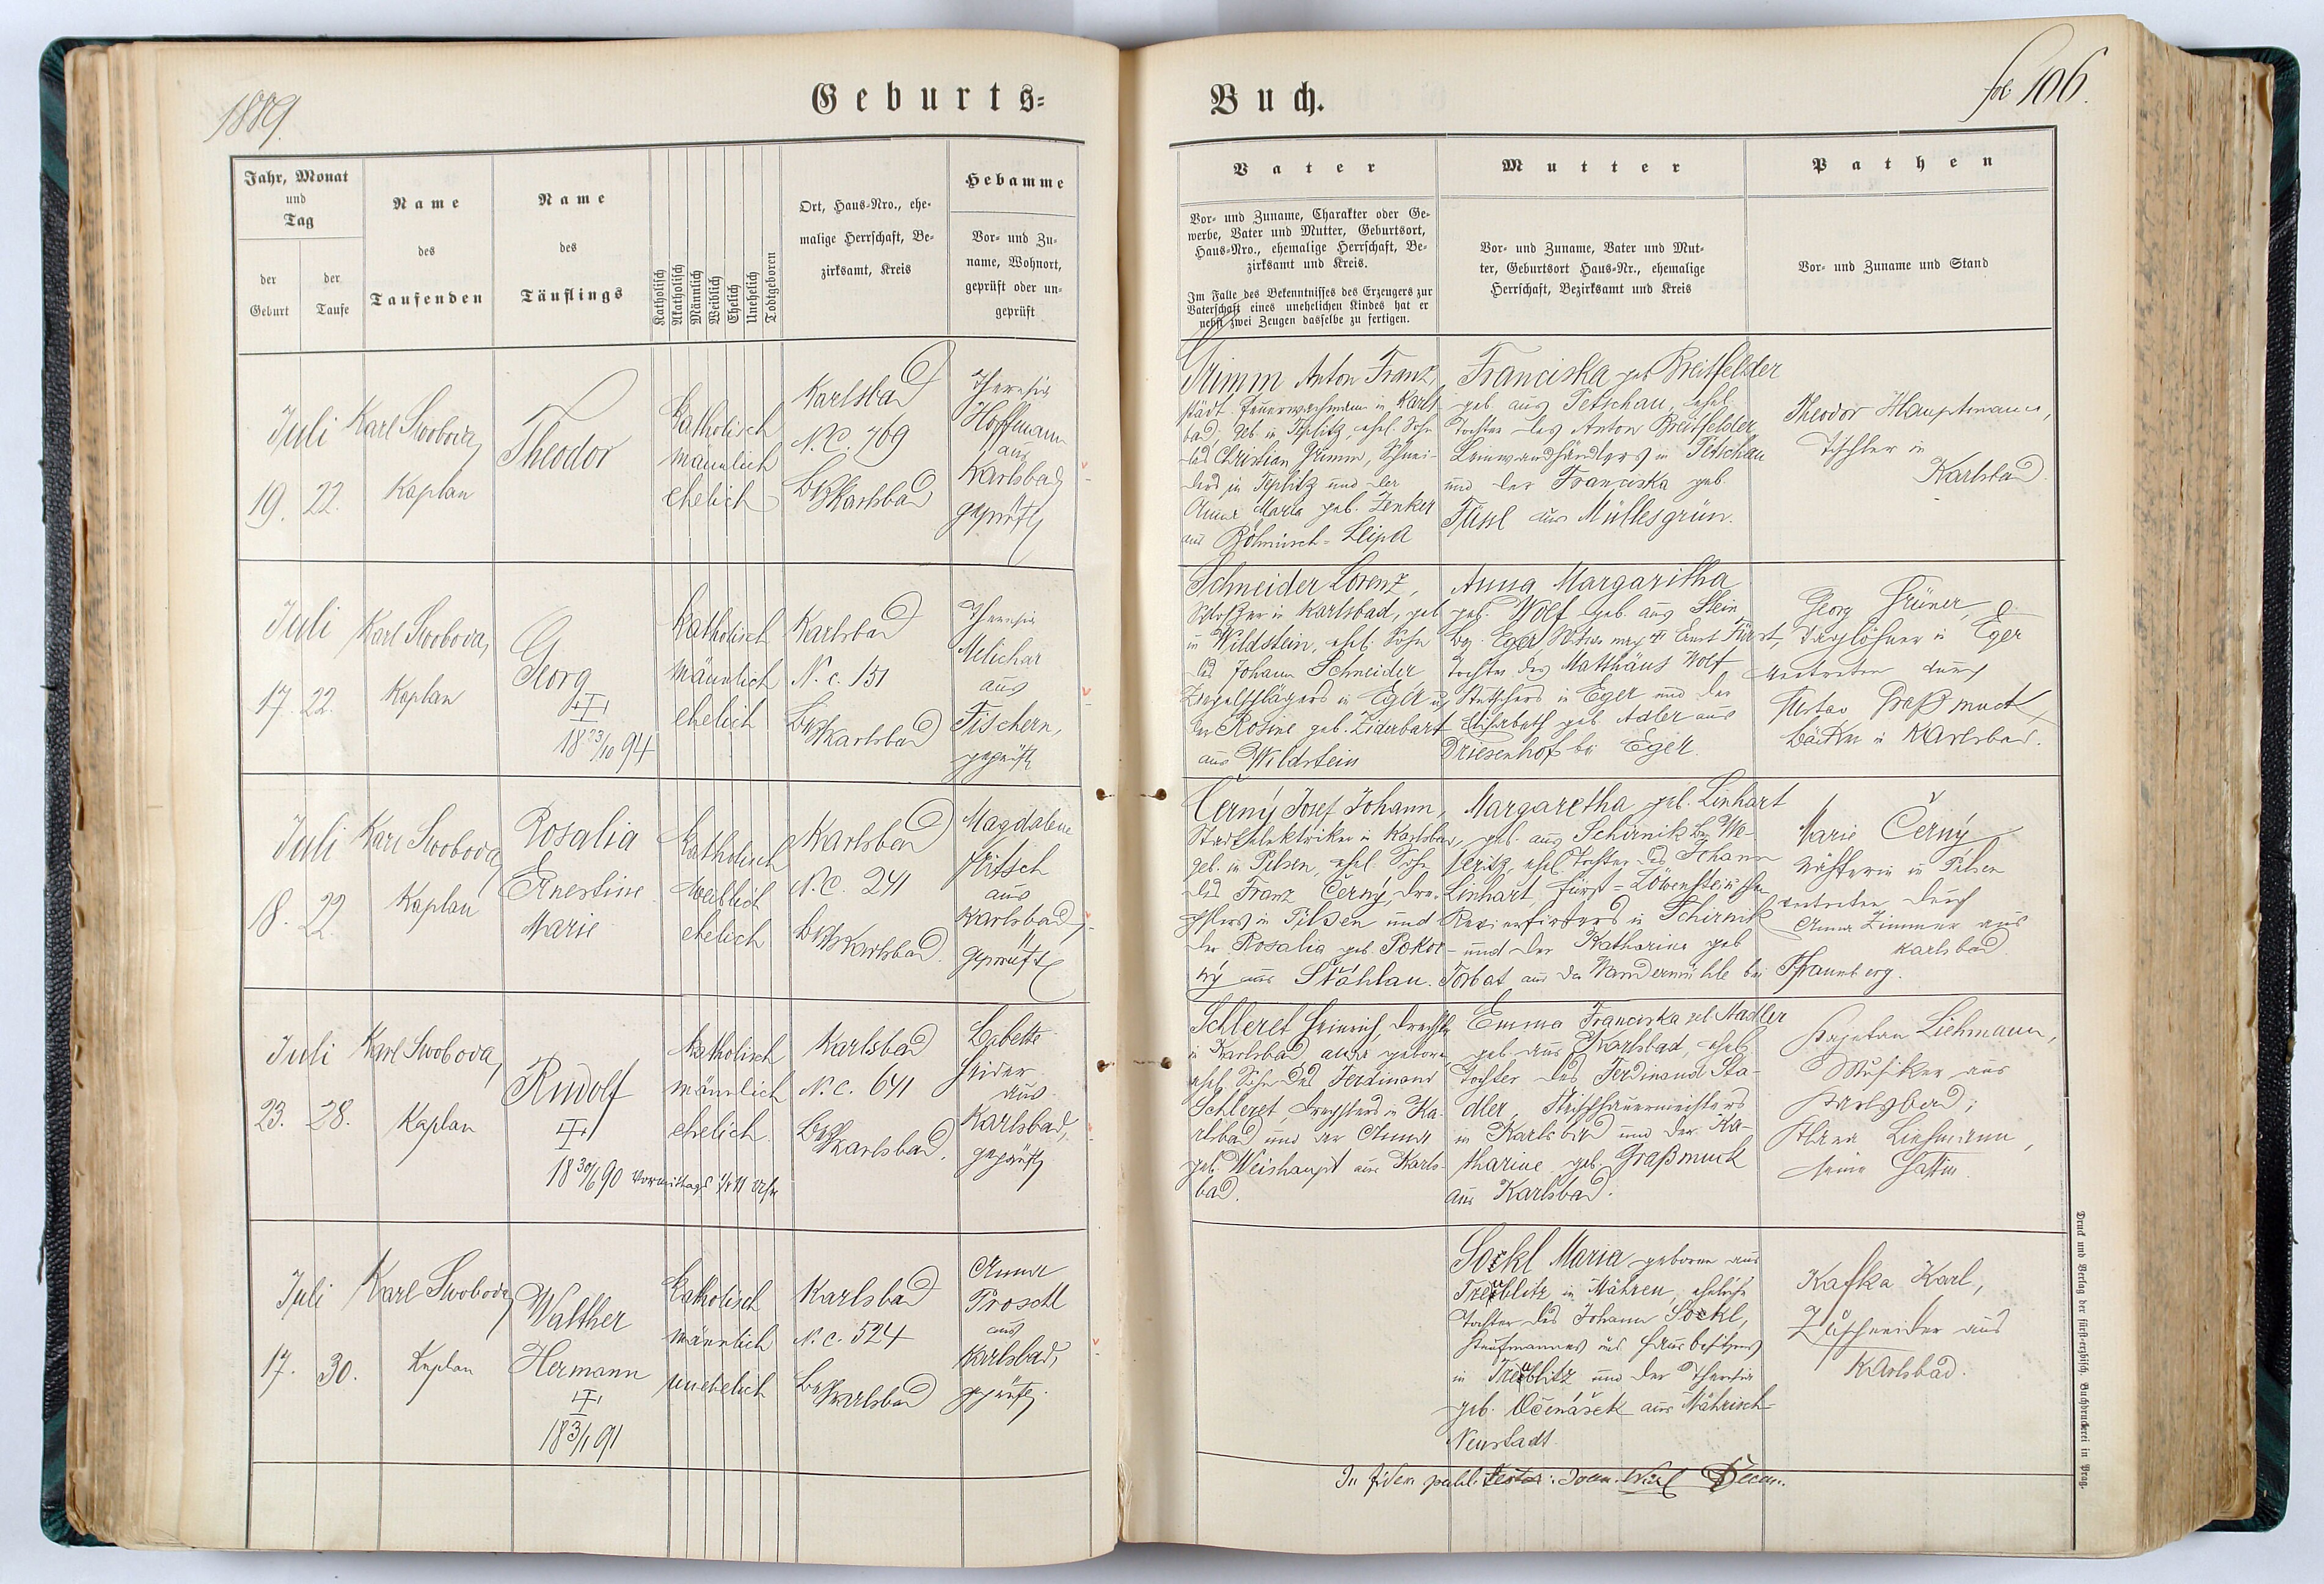 1889.
Geburts-
Jahr, Monat
und
Tag
der
Geburt
der
Taufe
Name
des
Taufenden
Name
des
Täuflings
Katholisch
Akatholisch
Männlich
Weiblich
Ehelich
Unehelich
Todtgeboren
Ort, Haus-Nro., ehe-
malige Herrschaft, Be-
zirksamt, Kreis
Hebamme
Vor- und Zu-
name, Wohnort,
geprüft oder un-
geprüft
Juli
19. 22.
Karl Swoboda,
Kaplan
Theodor
Katholisch
männlich
ehelich
Karlsbad
N. C. 769
Karlsbad
Theresia
Hoffmann
aus
Karlsbad,
geprüft
Juli
17. 22.
Karl Swoboda,
Kaplan
Georg
18 23/10 94
Katholisch
männlich
ehelich
Karlsbad
N. c. 151
Karlsbad
Theresia
Melichar
aus
Fischern,
geprüft
Juli
18. 22.
Karl Swoboda,
Kaplan
Rosalia
Ernestine
Marie
Katholisch
weiblich
ehelich
Karlsbad
N. C. 241
Karlsbad.
Magdalena
aus
Karlsbad,
geprüft
Juli
23. 28.
Karl Swoboda,
Kaplan
Rudolf
18 30/6 90 Vormittags 1/4 11 Uhr
Katholisch
männlich
ehelich.
Karlsbad
N. C. 641
Karlsbad.
Babette
aus
Karlsbad,
geprüft
Juli
17. 30.
Karl Swoboda,
Kaplan
Walther
Hermann
18 3/1 91
Katholisch
männlich
unehelich
Karlsbad
N. C. 524
Karlsbad
Anna
Proschl
aus
Karlsbad,
geprüft.
Buch.
fol. 106.
Vater
Vor- und Zuname, Charakter oder Ge-
werbe, Vater und Mutter, Geburtsort,
Haus-Nro., ehemalige Herrschaft, Be-
zirksamt und Kreis.
Im Falle des Bekenntnisses des Erzeugers zur
Vaterschaft eines unehelichen Kindes hat er
nebst zwei Zeugen dasselbe zu fertigen.
Mutter
Vor- und Zuname, Vater und Mut-
ter, Geburtsort Haus-Nr., ehemalige
Herrschaft, Bezirksamt und Kreis
Pathen
Vor- und Zuname und Stand
Grimm Anton Franz,
städt. Feuerwachmann in Karls-
bad, geb. in Teplitz, ehel. Sohn
des Christian Grimm, Schnei-
ders in Teplitz und der
Anna Maria geb. Zenker
aus Böhmisch-Leipa
Franciska geb. Breitfelder
geb. aus Petschau, ehel.
Tochter des Anton Breitfelder,
Leinwandhändlers in Petschau
und der Franciska geb.
Füssl aus Müllesgrün.
Theodor Hauptmann,
Tischler in
Karlsbad.
Schneider Lorenz,
Schlosser in Karlsbad, geb.
in Wildstein, ehel. Sohn
des Johann Schneider
Ziegelschlägers in Eger u.
der Rosine geb. Ziderbart
aus Wildstein
Anna Margaritha
geb. Wolf geb. aus Stein
Bez. Eger Witwe nach Ernst Fürst,
Tochter des Matthäus Wolf
in Eger und der
Elisabeth geb. Adler aus
Driesenhof bei Eger.
Georg Grüner,
Taglöhner in Eger
vertreten durch
Gustav Graßmuck
Bäcker in Karlsbad.
Černý Josef Johann,
Stadtelektriker in Karlsbad,
geb. in Pilsen, ehel. Sohn
des Franz Černý, Dre-
chslers in Pilsen und
der Rosalia geb. Pokor-
ný aus Stáhlau.
Margaretha geb. Linhart
geb. aus Schirnik Bz. We-
seritz, ehel. Tochter des Johann
Linhart, Fürst-Löwenstein'schen
Revierförsters in Schirnik
und der Katharina geb.
Torbat aus der Wandermühle bei Pfraumberg.
Marie Černý
Nähterin in Pilsen
vertreten durch
Anna Zimmer aus
Karlsbad.
Schleret Heinrich, Drechsler
in Karlsbad, allda geboren,
ehel. Sohn des Ferdinand
Schleret, Drechslers in Ka-
rlsbad und der Anna
geb. Weishaupt aus Karls-
bad.
Emma Franciska geb. Stadler
geb. aus Karlsbad, ehel.
Tochter des Ferdinand Sta-
dler, Fleischhauermeisters
in Karlsbad und der Ka-
tharine geb. Graßmuck
aus Karlsbad.
Kajetan Liehmann,
Musiker aus
Karlsbad;
Liehmann,
seine Gattin.
Sockl Maria geboren aus
Treublitz in Mähren, eheliche
Tochter des Johann Sockl,
Kaufmannes und Hausbesitzers
in Treublitz und der Theresia
geb. Očenášek aus Mährisch-
Neustadt.
Kafka Karl,
Zuschneider aus
Karlsbad.
In fidem publ. testor:
Druck und Verlag der fürst-erzbisch. Buchdruckerei in Prag.